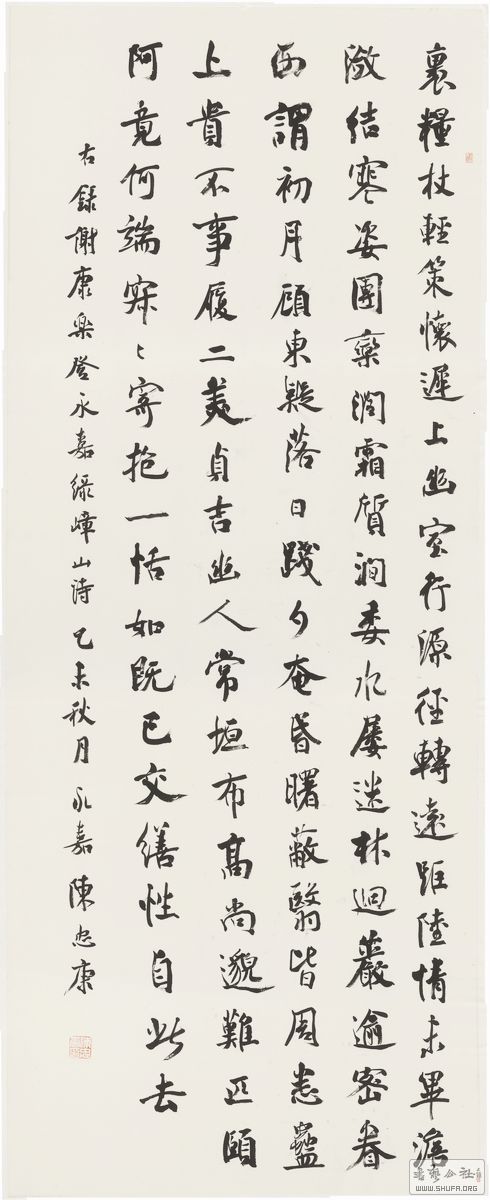 裹糧杖輕策懷遲上幽室行源徑轉遠距陸情未畢澹
潋結寒姿團欒潤霜質澗委水屢迷林迥巖逾密眷
西謂初月顧東疑落日踐夕奄昏曙蔽翳皆周悉蠱
上貴不事履二美貞吉幽人常坦布高尚邈難匹頤
阿竟何端寂〻寄抱一恬如既已交繕性自此去
右錄謝康樂登永嘉綠嶂山詩 乙未秋月 永嘉陳忠康
WWW.SHUFA.ORG